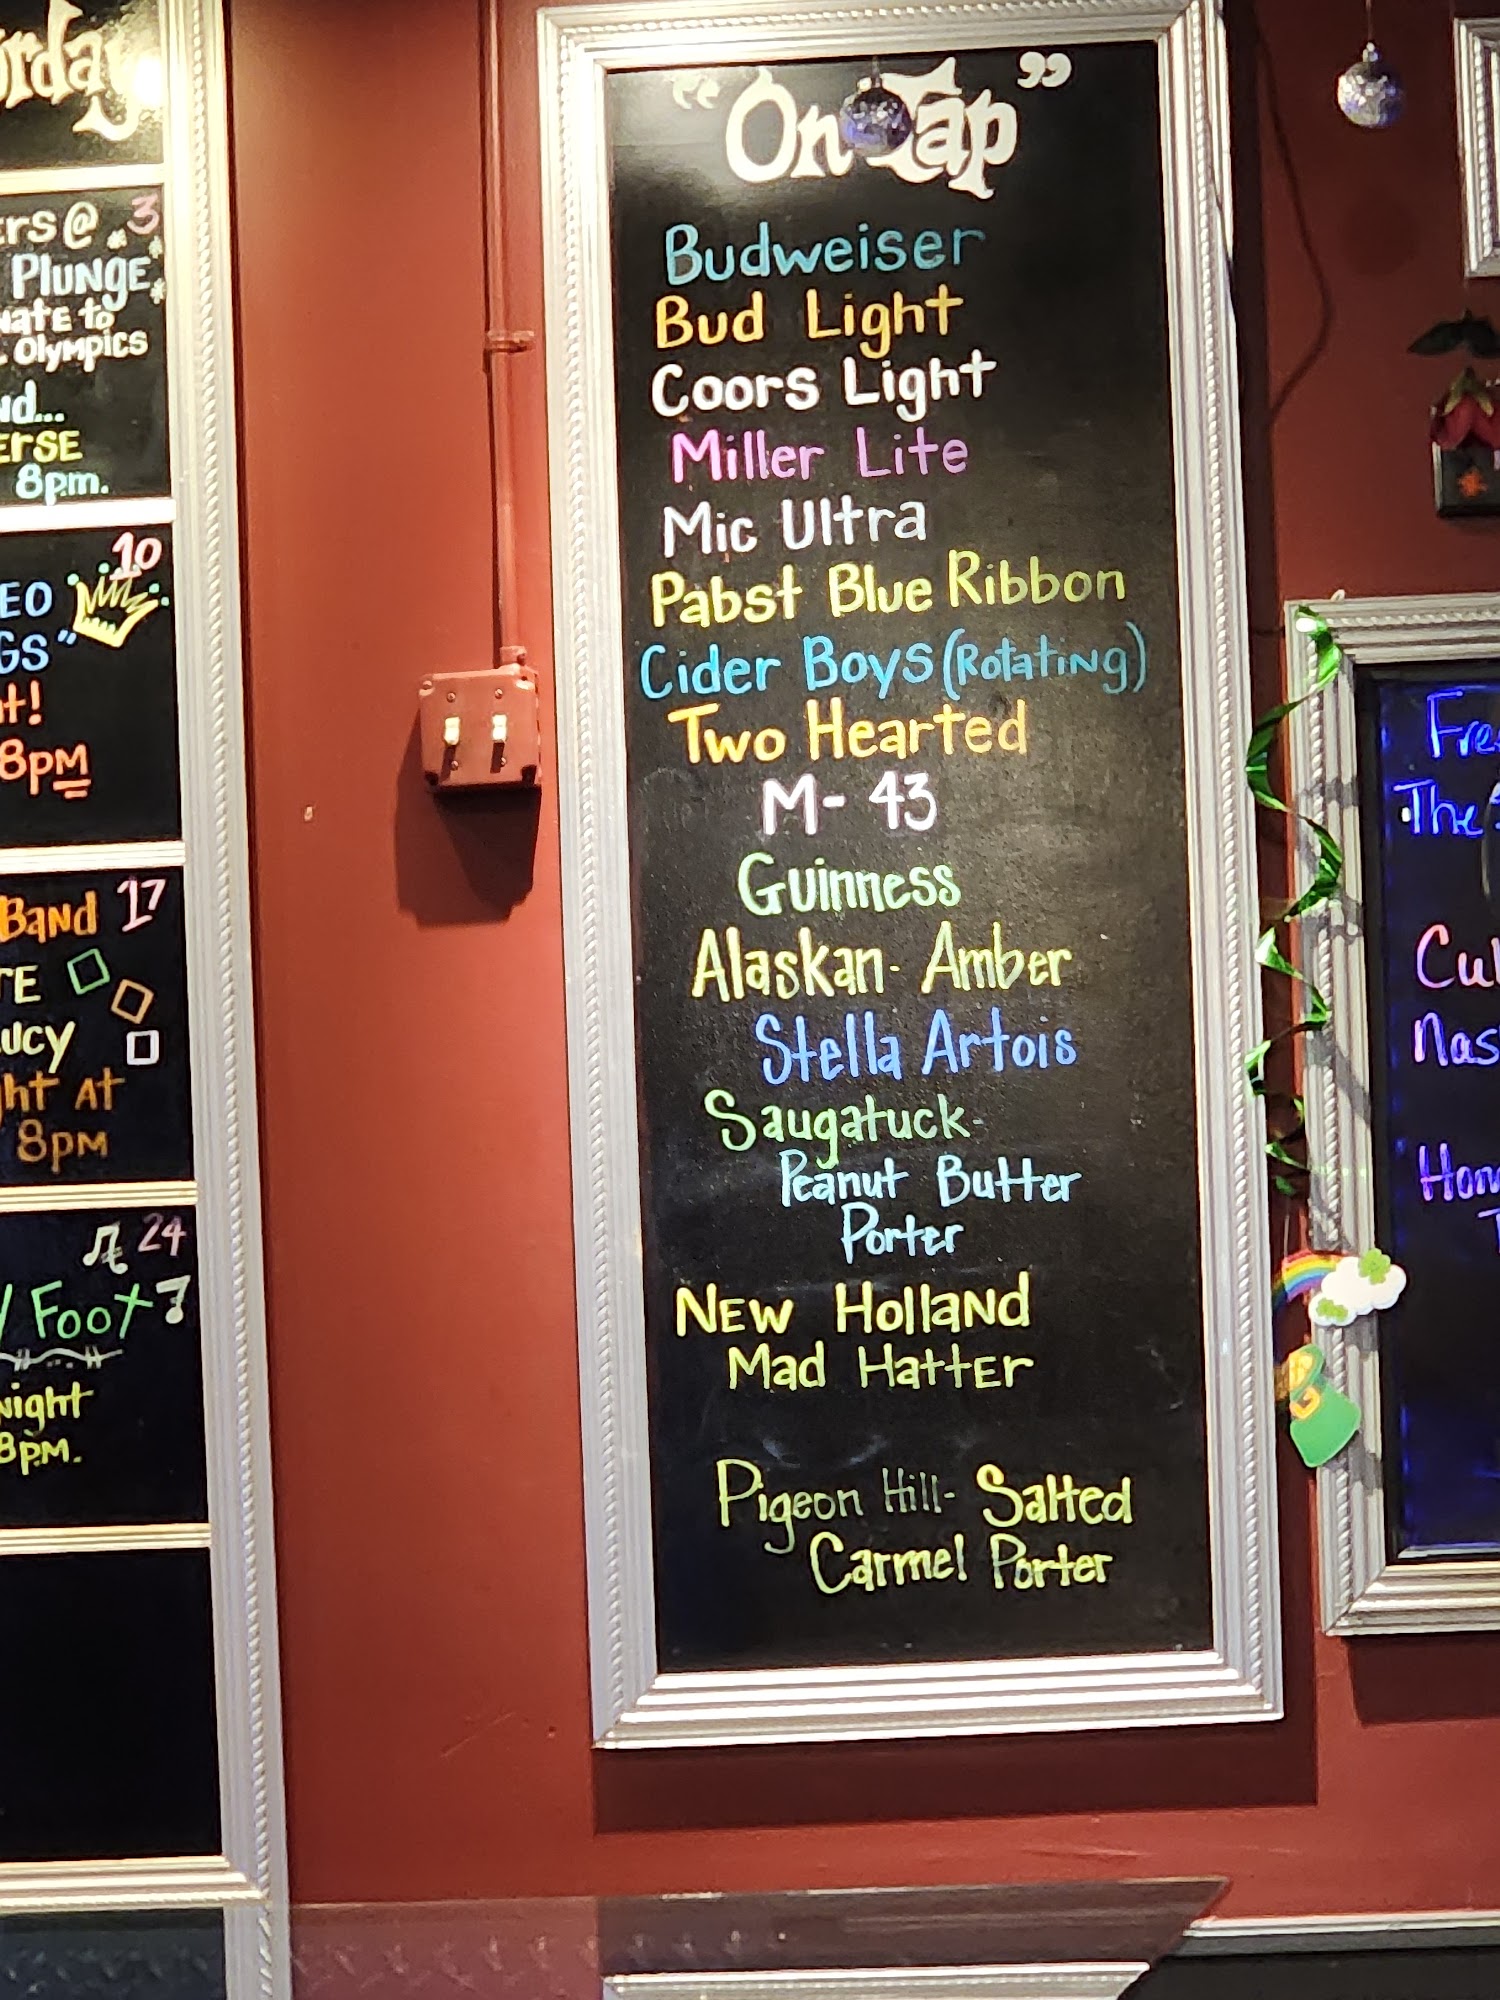 3
PLUNGE
to
Olympics
8pm.
10
8pm
Band 17
At
8pm
24
Foot
8pm.
"On Tap"
Budweiser
Bud Light
Coors Light
Miller Lite
Mic Ultra
Pabst Blue Ribbon
Cider Boys (Rotating)
Two Hearted
M-43
Guinness
Alaskan- Amber
Stella Artois
Saugatuck-
Peanut Butter
Porter
New Holland
Mad Hatter
Pigeon Hill- Salted
Carmel Porter
The